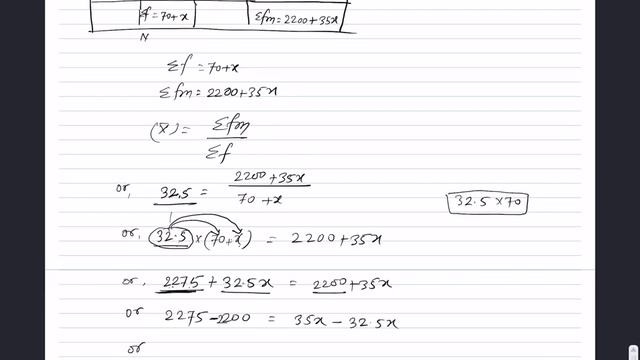 f = 70+x
Σfm = 2200+35x
N
Σf = 70+x
Σfm = 2200+35x
(x̄) = Σfm / Σf
or, 32.5 = 2200+35x / 70+x
32.5 × 70
or, 32.5 × (70+x) = 2200+35x
or, 2275 + 32.5x = 2200+35x
or 2275-2200 = 35x - 32.5x
or